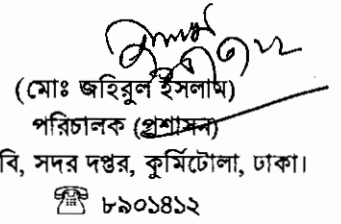 (মোঃ জহিরুল ইসলাম)
পরিচালক (প্রশাসন)
বি, সদর দপ্তর, কুর্মিটোলা, ঢাকা।
☎ ৮৯০১৪১২